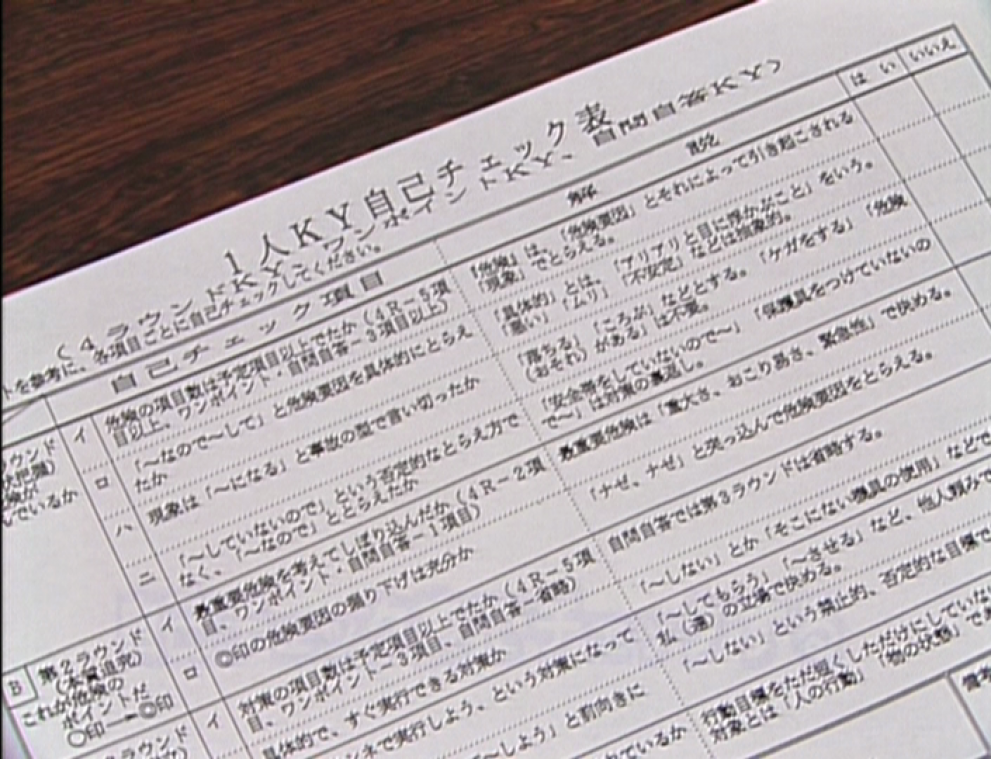 1人KY自己チェック表
(4ラウンドKY、ワンポイントKY、自問自答KY)
トを参考に、各項目ごとに自己チェックしてください。
自己チェック項目
解説
はい
いいえ
イ
危険の項目数は予定項目以上でたか(4R-5項
目以上、ワンポイント・自問自答-3項目以上)
「危険」は、「危険要因」とそれによって引き起こされる
「現象」でとらえる。
ロ
「~なので~して」と危険要因を具体的にとらえ
たか
「具体的」とは、「アリアリと目に浮かぶこと」をいう。
「悪い」「ムリ」「不安定」などは抽象的。
ハ
現象は「~になる」と事故の型で言い切ったか
「落ちる」「ころぶ」などとする。「ケガをする」「危険
(おそれ)がある」は不要。
ニ
「~していないので」という否定的なとらえ方で
なく、「~なので」ととらえたか
「安全帯をしていないので~」「保護具をつけていないの
で~」は対策の裏返し。
B
第2ラウンド
(本質追究)
これが危険の
ポイントだ
○印→◎印
イ
最重要危険を考えてしぼり込んだか(4R-2項
目、ワンポイント・自問自答-1項目)
最重要危険は「重大さ、おこり易さ、緊急性」で決める。
ロ
◎印の危険要因の掘り下げは充分か
「ナゼ、ナゼ」と突っ込んで危険要因をとらえる。
ラウンド
イ
対策の項目数は予定項目以上でたか(4R-5項
目、ワンポイント-3項目、自問自答-省略)
自問自答では第3ラウンドは省略する。
具体的で、すぐ実行できる対策か
「~しない」とか「そこにない機具の使用」などで
ンネで実行しよう、という対策になって
「~してもらう」「~させる」など、他人頼みで
私(達)の立場で決める。
よう」と前向きに
「~しない」という禁止的、否定的な目標で
れているか
行動目標をただ短くしただけにしていない
対象とは「人の行動」「物の状態」であ
備考